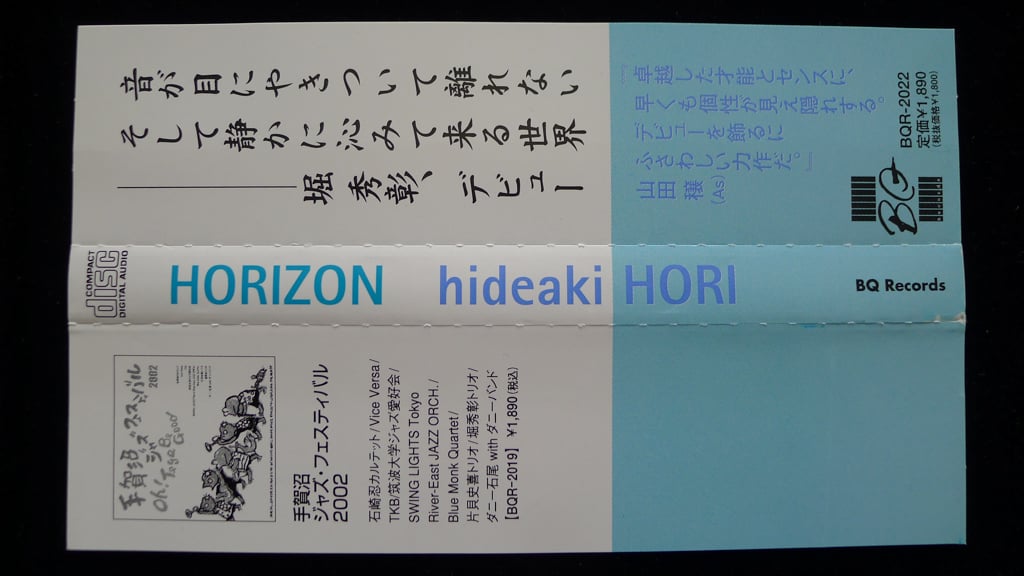 音が目にやきついて離れない
そして静かに沁みて来る世界
堀 秀彰、デビュー
「卓越した才能とセンスに、
早くも個性が見え隠れする。
デビューを飾るに
ふさわしい力作だ。」
山田 穣(As)
BQR-2022
定価¥1,890
(税抜価格¥1,800)
BQ
COMPACT
disc
DIGITAL AUDIO
HORIZON
hideaki HORI
BQ Records
手賀沼ジャズフェスティバル
2002
Oh! Together Good
手賀沼
ジャズ・フェスティバル
2002
石崎忍カルテット/Vice Versa/
TKB/筑波大学ジャズ愛好会/
SWING LIGHTS Tokyo
River-East JAZZ ORCH./
Blue Monk Quartet/
片貝史喜トリオ/堀秀彰トリオ/
ダニー石尾 with ダニーバンド
【BQR-2019】 ¥1,890(税込)